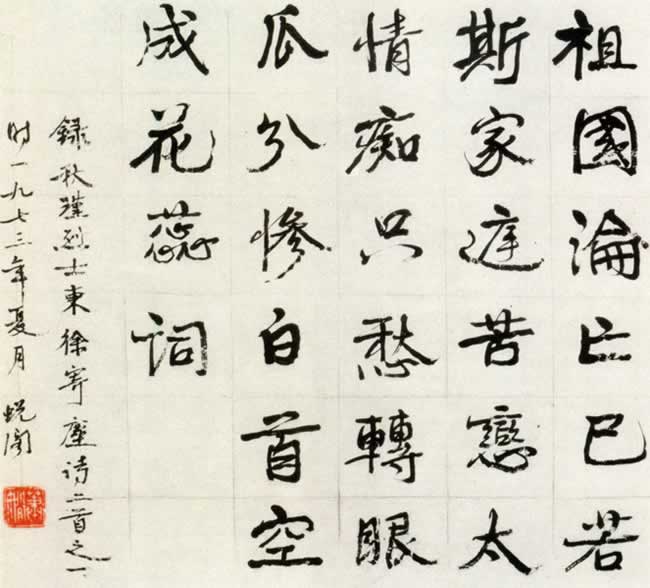 祖國淪亡已若
斯家庭苦戀太
情痴只愁轉眼
瓜分慘白首空
成花蕊詞
錄秋瑾烈士東徐寄塵詩二首之一
时一九七三年夏月 蜕阁